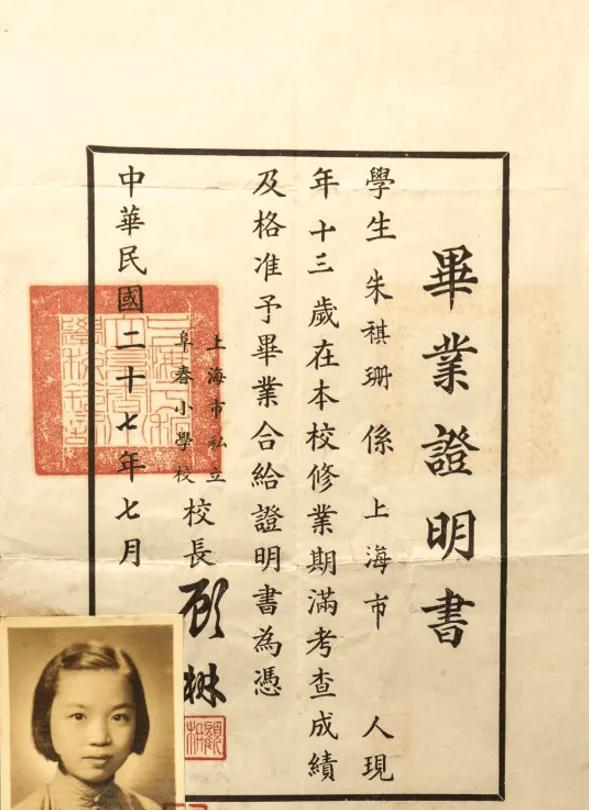 畢業證明書
學生朱祺珊係上海市人現
年十三歲在本校修業期滿考查成績
及格准予畢業合給證明書為憑
上海市私立
阜春小學校
校長顧琳
中華民國二十七年七月